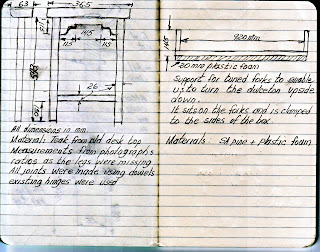 63
36,5
115
14,5
11,5
11,5
26
100
All dimensions in mm.
Material: Teak from old desk top
Measurements from photographs
ratios as the legs were missing
All joints were made using dowels
existing hinges were used
920mm
145
20mm plastic foam
Support for tuned forks to enable
us to turn the dulceton upside
down.
It sits on the forks and is clamped
to the sides of the box.
Materials: SA pine + plastic foam